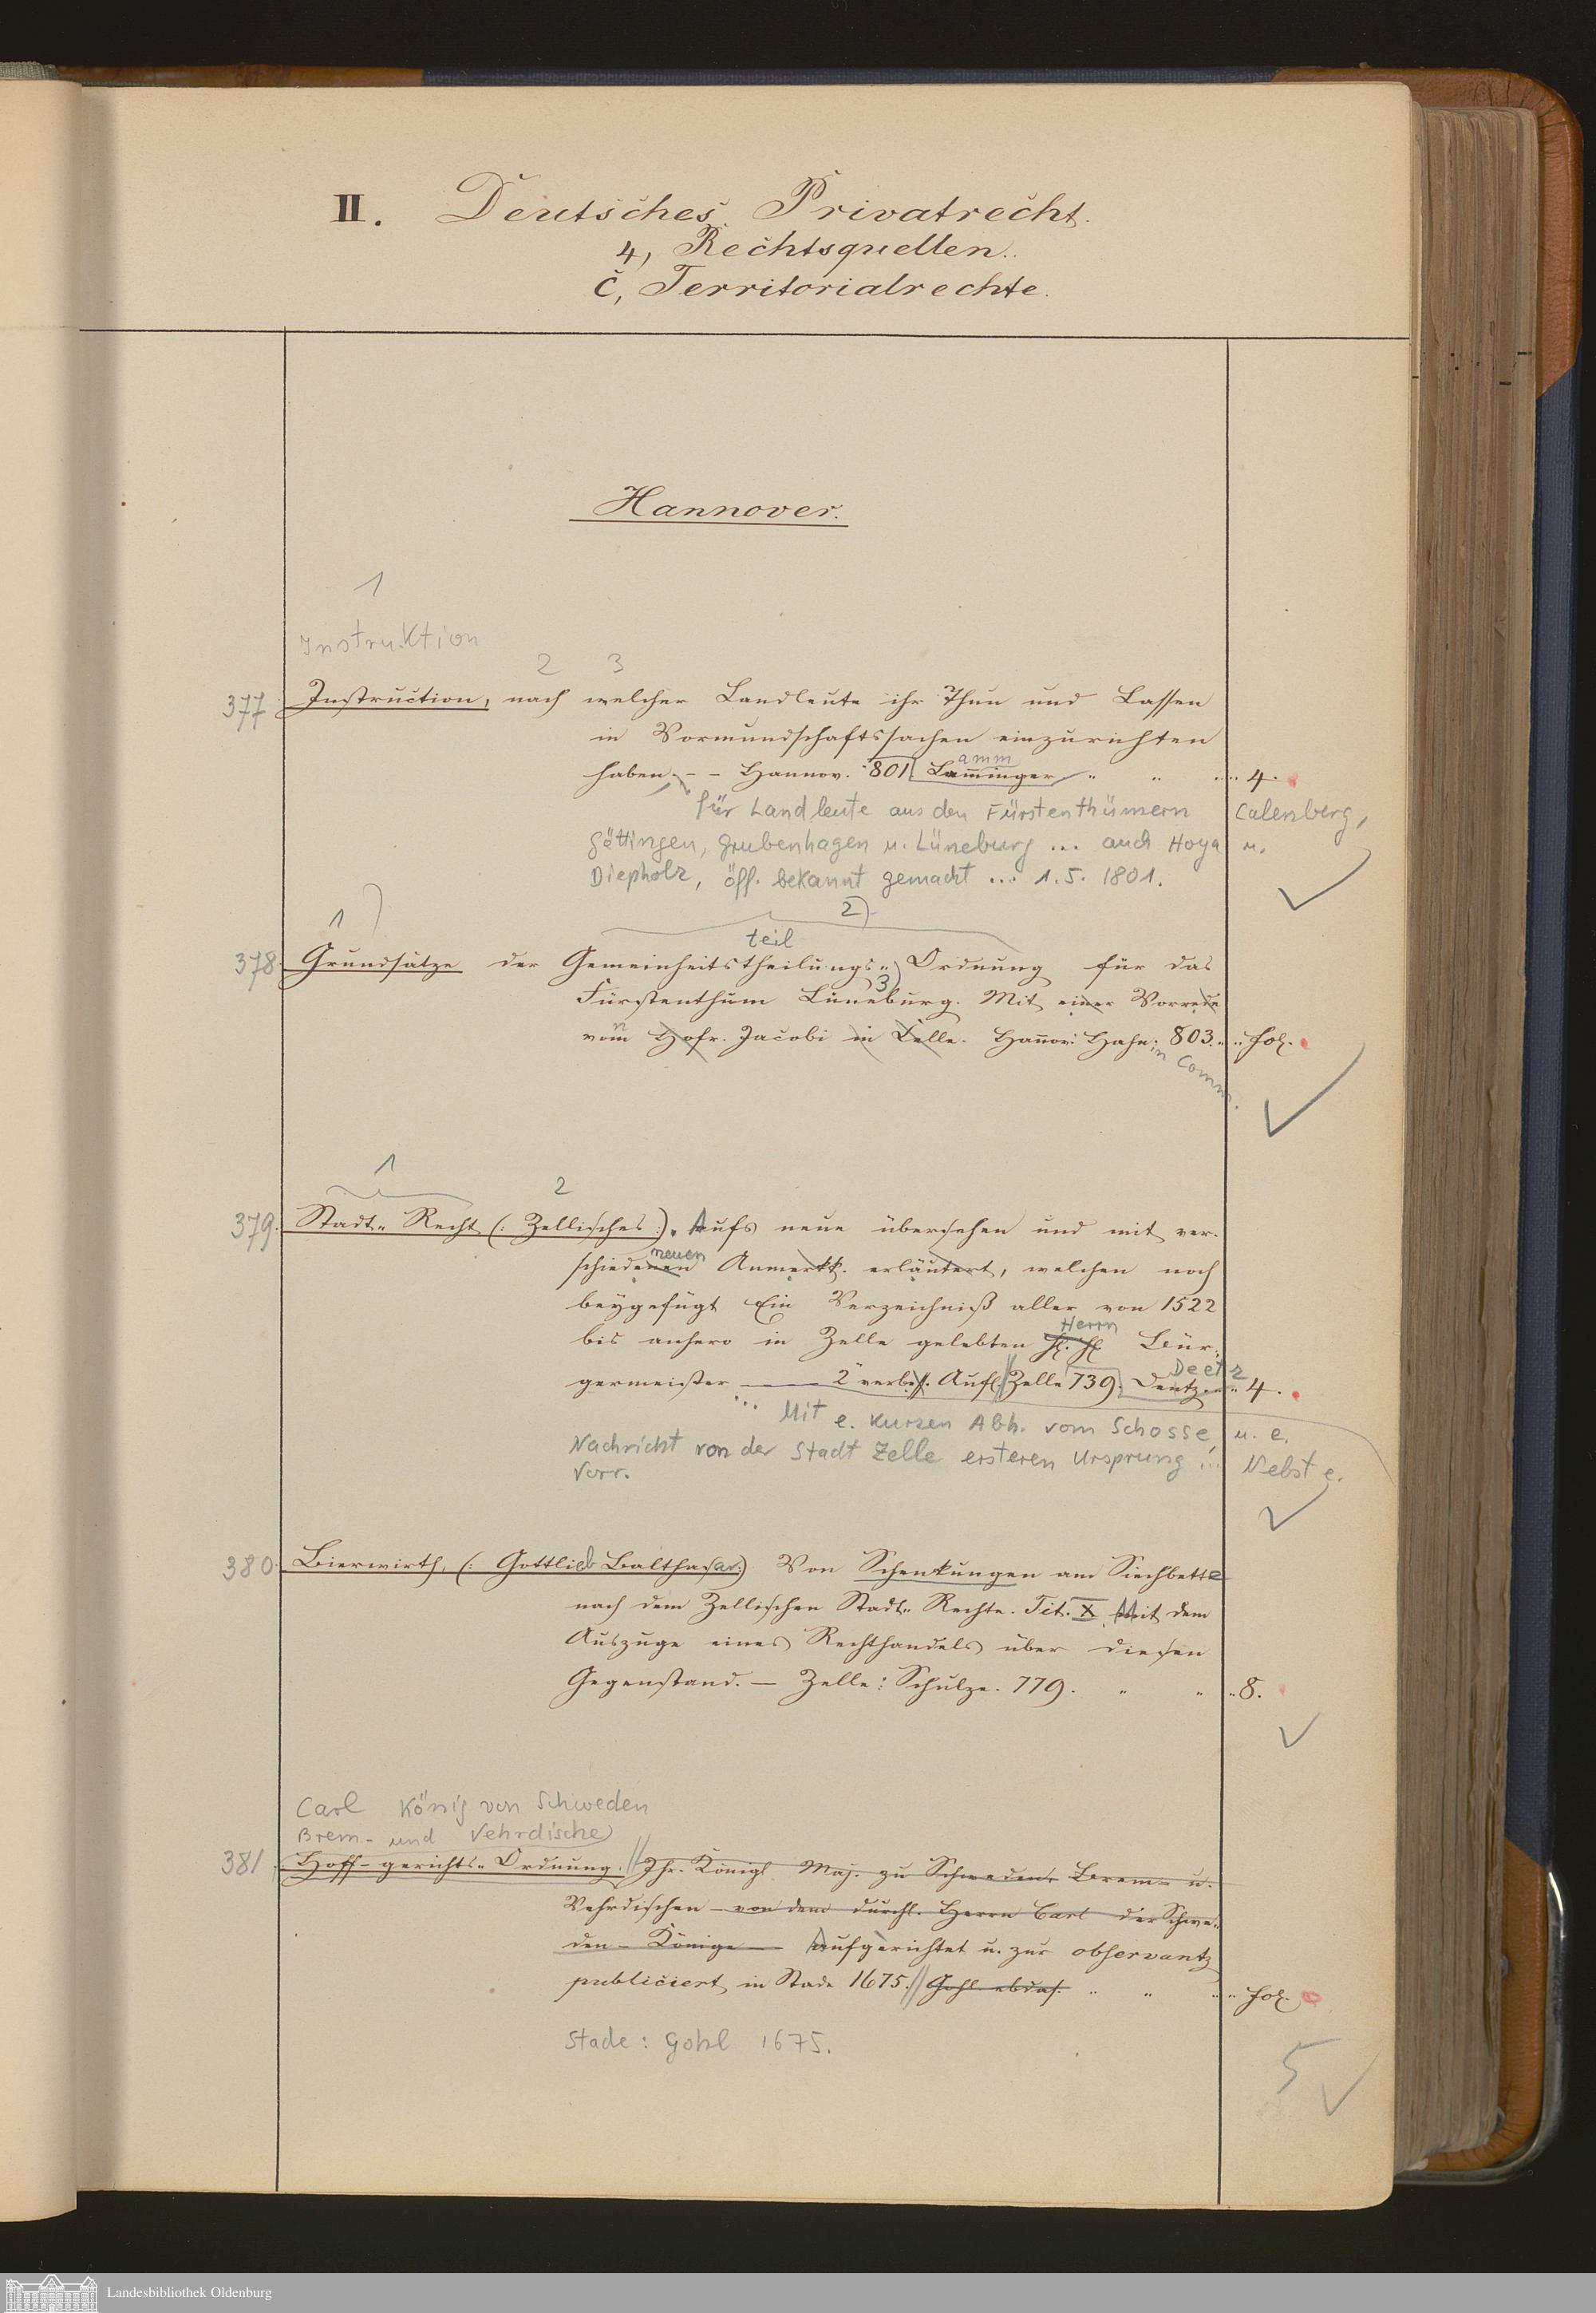 II. Deutsches Privatrecht.
4, Rechtsquellen.
c, Territorialrechte.
Hannover.
1
Instruktion
2 3
377 Instruction, nach welcher Landleute ihr Thun und Lassen
in Vormundschaftssachen einzurichten
amm
haben. - - Hannov. 801. Lam̄inger " " " 4.
für Landleute aus den Fürstenthümern Calenberg,
Göttingen, Grubenhagen u. Lüneburg ... auch Hoya u.
Diepholz, öff. bekannt gemacht ... 1.5. 1801.
1 2)
teil
378 Grundsätze der Gemeinheitstheilungs- Ordnung für das
3
Fürstenthum Lüneburg. Mit einer Vorrede
n
vom Hofr. Jacobi in Celle. Han̄ov: Hahn. 803. " fol.
in Comm.
1
2
379. Stadt- Recht (: Zellisches :). Aufs neue übersehen und mit ver-
neuen
schiedenen Anmerkk. erläutert, welchen noch
beygefügt Ein Verzeichniß aller von 1522
Herrn
bis anhero in Zelle gelebten H. H. Bür-
Deetz
germeister — 2 verbess. Aufl. Zelle 739. Deutz. " 4.
... Mit e. kurzen Abh. vom Schosse, u. e.
Nachricht von der Stadt Zelle ersteren Ursprung ... Nebst e.
Vorr.
380. Bierwirth, (: Gottlieb Balthasar:) Von Schenkungen am Siechbette
nach dem Zellischen Stadt- Rechte. Tit. X. Mit dem
Auszuge eines Rechthandels über diesen
Gegenstand. — Zelle: Schulze. 779. " " " 8.
Carl König von Schweden
Brem- und Vehrdische
381. Hoff- gerichts- Ordnung. Ihr. Königl. Maj. zu Schweden, Brem- u.
Vehrdischen - von dem durchl. Herrn Carl der Schwe-
den - Könige — Aufgerichtet u. zur observantz
publiciert in Stade 1675. Gohl ebdas. " " " fol.
Stade: Gohl 1675.
5
Landesbibliothek Oldenburg